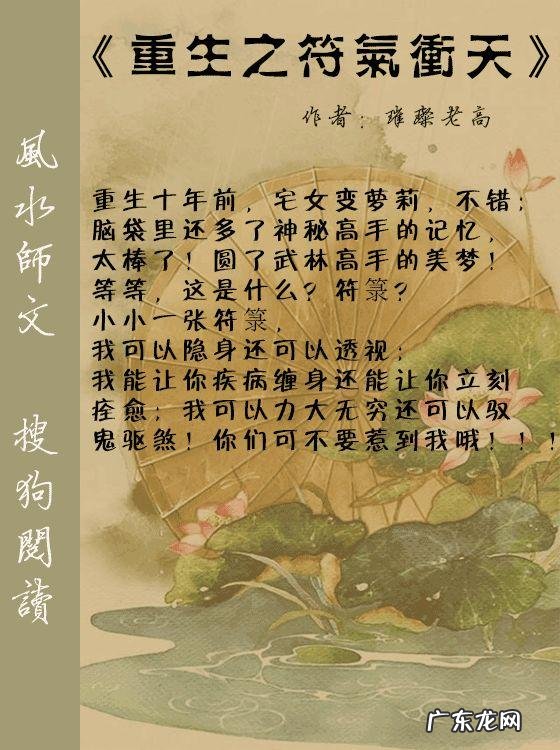 《重生之符氣衝天》
作者：璀璨老高
重生十年前，宅女变萝莉，不错；
脑袋里还多了神秘高手的记忆，
太棒了！圆了武林高手的美梦！
等等，这是什么？符箓？
小小一张符箓，
我可以隐身还可以透视；
我能让你疾病缠身还能让你立刻
痊愈；我可以力大无穷还可以驭
鬼驱煞！你们可不要惹到我哦！！！
風水師文 搜狗閱讀
广东龙网